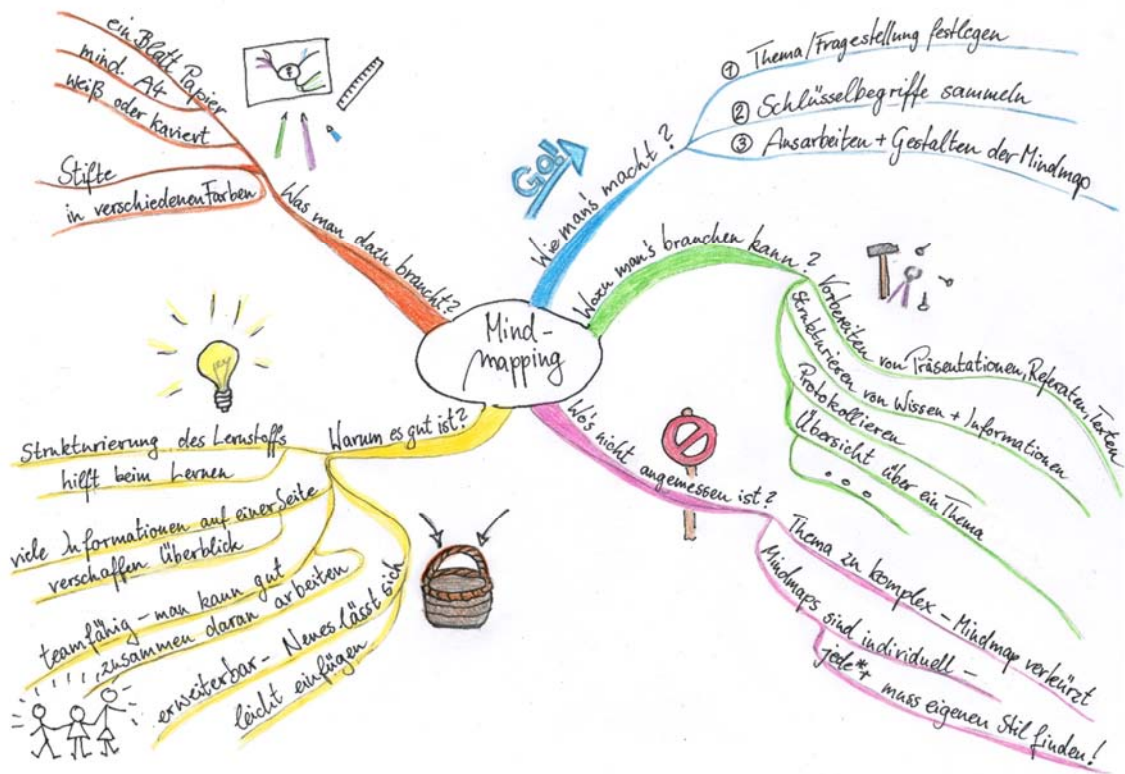 Mind-
mapping
Was man dazu braucht?
ein Blatt Papier
mind. A4
weiß oder kariert
Stifte
in verschiedenen Farben
Go!
Wie man's macht?
① Thema/Fragestellung festlegen
② Schlüsselbegriffe sammeln
③ Ausarbeiten + Gestalten der Mindmap
Wozu man's brauchen kann?
Vorbereiten von Präsentationen, Referaten, Texten
Strukturieren von Wissen + Informationen
Protokollieren
Übersicht über ein Thema
...
Wo's nicht angemessen ist?
Thema zu komplex – Mindmap verkürzt
Mindmaps sind individuell –
jede*r muss eigenen Stil finden!
Warum es gut ist?
Strukturierung des Lernstoffs
hilft beim Lernen
viele Informationen auf einer Seite
verschaffen Überblick
teamfähig – man kann gut
zusammen daran arbeiten
erweiterbar – Neues lässt sich
leicht einfügen